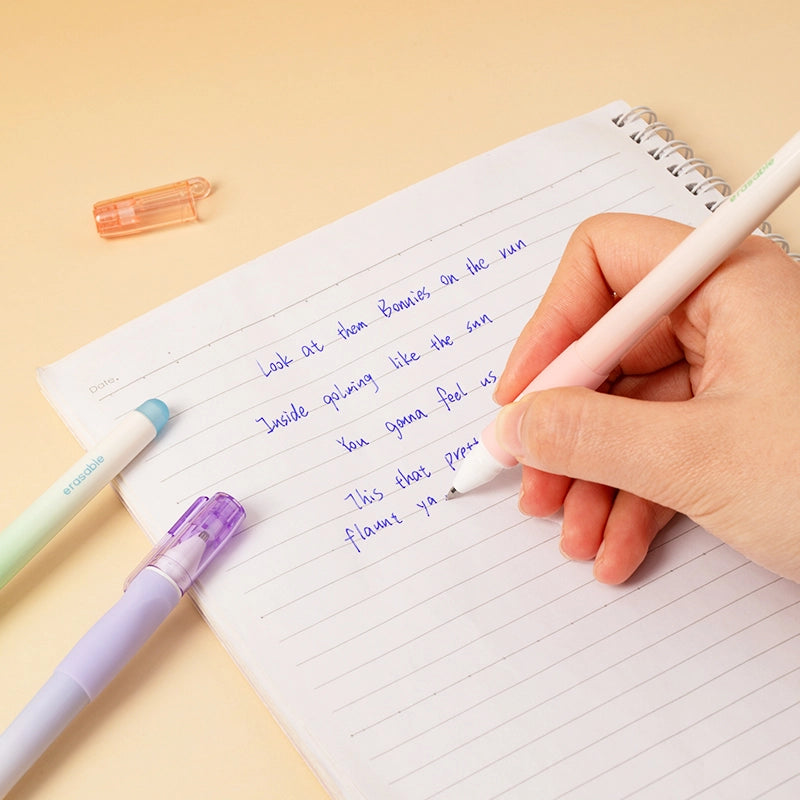 Date.
Look at them Bonnies on the run
Inside golwing like the sun
You gonna feel us
This that prett
flaunt ya
erasable
erasable